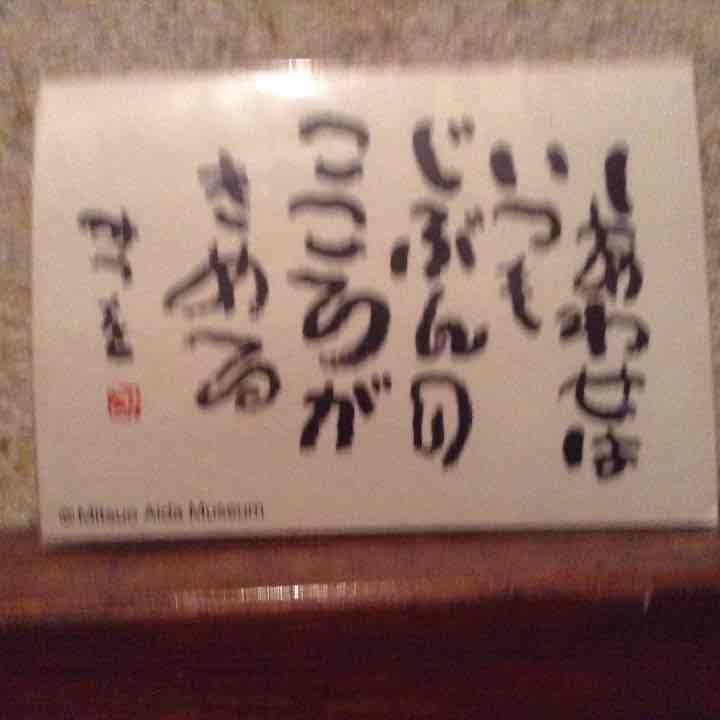 しあわせは
いつも
じぶんの
こころが
きめる
みつを
©Mitsuo Aida Museum